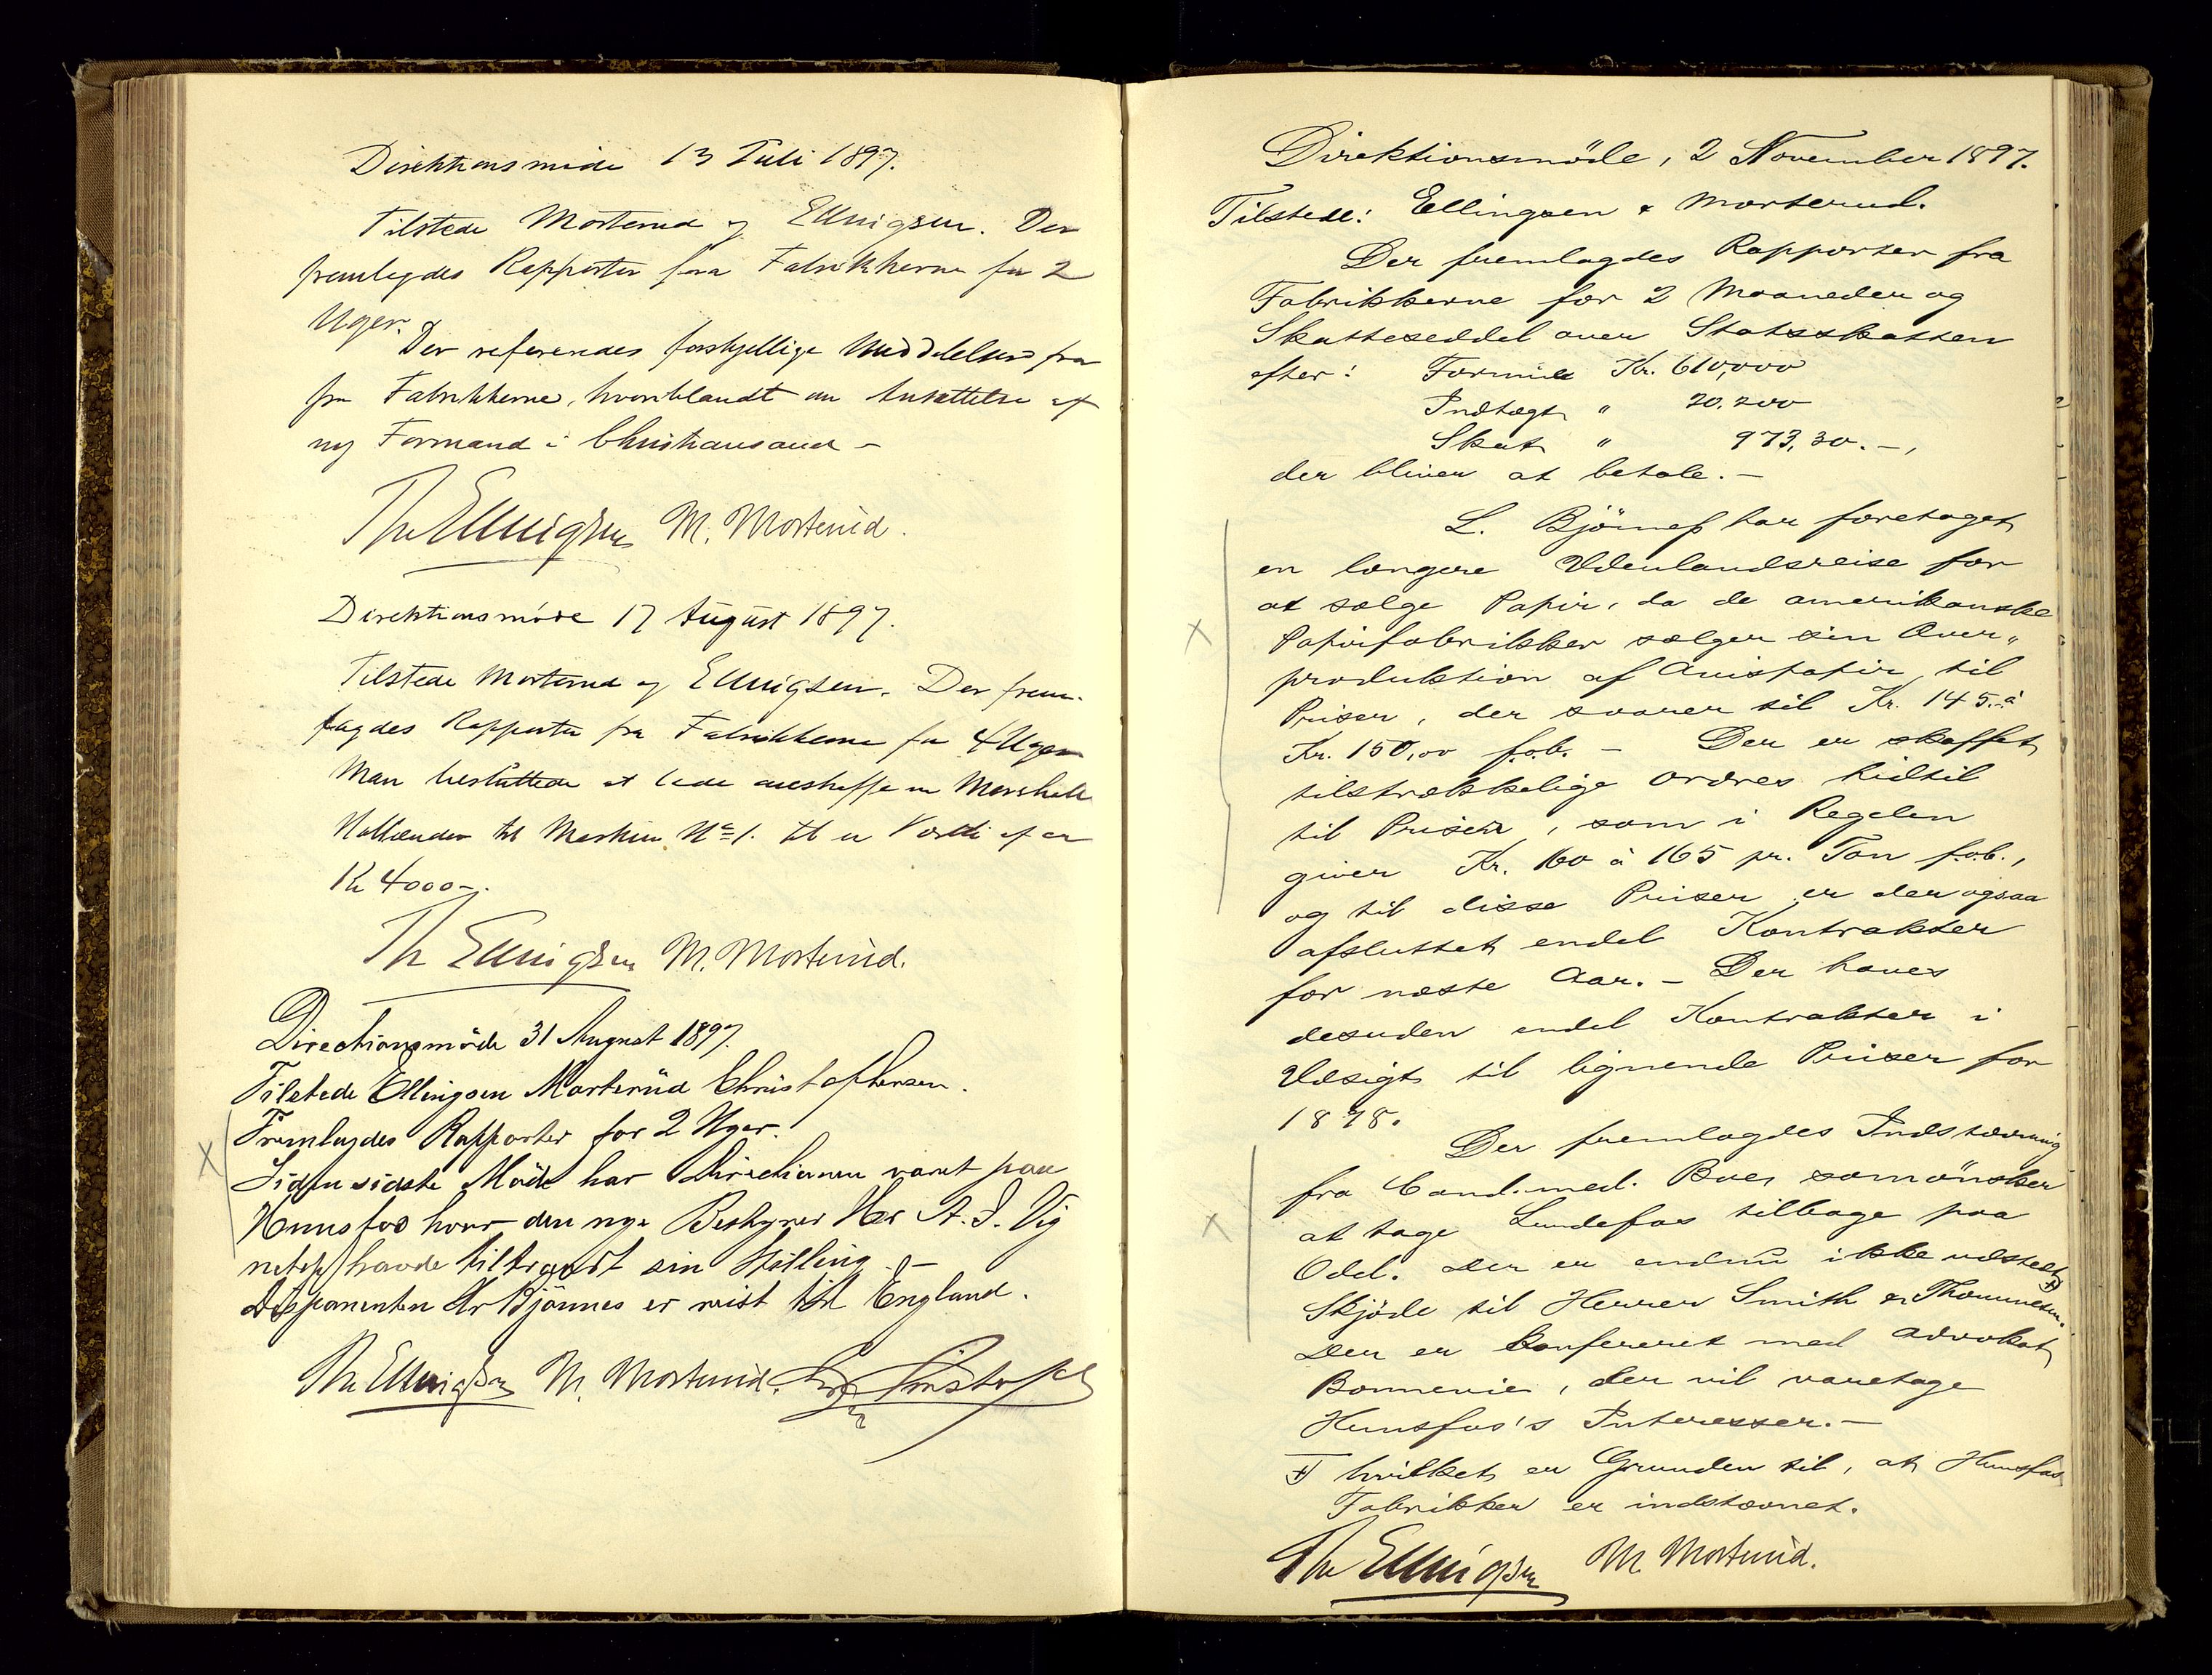 Direktionsmöde 13 Juli 1897.
Tilstede Mosterud og Ellingsen. Der
fremlagdes Rapporter fra Fabrikkerne for 2
Uger.
Der refereredes forskjellige Meddelelser fra
fra Fabrikkerne, hvoriblandt om Ansættelse af
ny Formand i Christianssand –
Th Ellingsen M. Mosterud.
Direktionsmöde 17 August 1897.
Tilstede Mosterud og Ellingsen. Der frem-
lagdes Rapporter fra Fabrikkerne for 4 Uger
Man besluttede at lade anskaffe en Marshall
Hollænder til Maskin No 1. til en Værdi af ca
Kr 4000-.
Th Ellingsen M. Mosterud.
Directionsmöde 31 August 1897.
Tilstede Ellingsen Morterud Christophersen.
Fremlagdes Rapporter for 2 Uger.
X
Siden sidste Möde har Directionen været paa
Hunsfos hvor den nye Bestyrer Herr A. I. Vig
netop havde tiltraadt sin Stilling. –
Disponenten Hr Bjönnes er reist til England.
Th Ellingsen M. Mosterud.
Direktionsmöde, 2 November 1897.
Tilstede: Ellingsen & Morterud.
Der fremlagdes Rapporter fra
Fabrikkerne for 2 Maaneder og
Skatteseddel over Statsskatten
efter: Formue Kr. 610,000
Indtægt " 20.200
Skat " 973,30.-,
der bliver at betale. –
L. Björneß har foretaget
en længere Udenlandsreise for
at sælge Papir, da de amerikanske
X
Papirfabrikker sælger sin Over"
produktion af Avispapir til
Priser, der svarer til Kr. 145.- à
Kr. 150,00 f.o.b. – Der er skaffet
tilstrækkelige Ordres hidtil
til Priser, som i Regelen
giver Kr. 160 à 165 pr. Ton f.o.b.,
og til disse Priser er der ogsaa
afsluttet endel Kontrakter
for næste Aar. – Der haves
desuden endel Kontrakter i
Udsigt til lignende Priser for
1898.
Der fremlagdes Indstævning
fra Cand. med. Bue, som önsker
X
at tage Lundefos tilbage paa
Odel. Der er endnu ikke udstedt
Skjöde til Herrer Smith & Thommesen.
Der er konfereret med Advokat
Bonnevie, der vil varetage
Hunsfos's Interesser. –
hvilket er Grunden til, at Hunsfos
Fabrikker er indstævnet.
Th Ellingsen M. Mosterud.